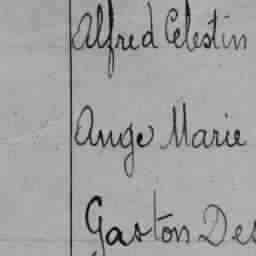 Alfred Celestin
Ange Marie
Gaston Des